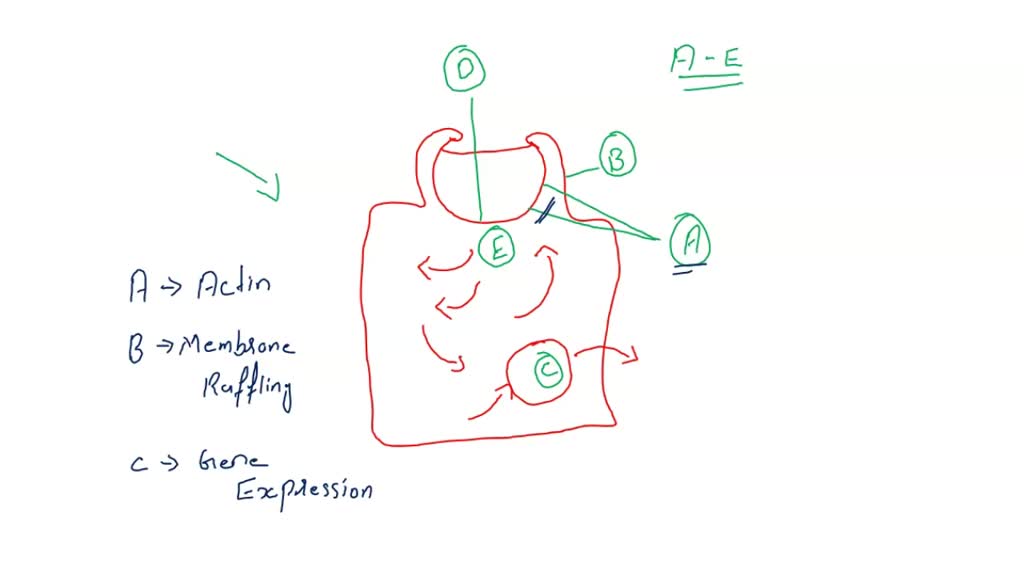 D
A - E
B
A
E
A → Actin
B → Membrone
Ruffling
C
C → Gene
Expression